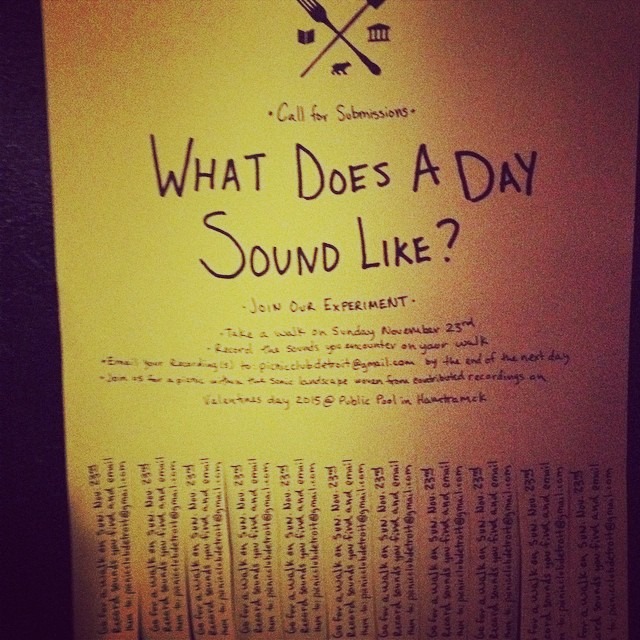 • Call for Submissions •
WHAT DOES A DAY
SOUND LIKE?
• JOIN OUR EXPERIMENT •
• Take a walk on Sunday November 23rd
• Record the sounds you encounter on your walk
• Email your Recording(s) to: picnicclubdetroit@gmail.com by the end of the next day
• Join us for a picnic within the sonic landscape woven from contributed recordings on
Valentines day 2015 @ Public Pool in Hamtramck
Go for a walk on Sun. Nov. 23rd
Record sounds you find and email
them to picnicclubdetroit@gmail.com
Go for a walk on Sun. Nov. 23rd
Record sounds you find and email
them to picnicclubdetroit@gmail.com
Go for a walk on Sun. Nov. 23rd
Record sounds you find and email
them to picnicclubdetroit@gmail.com
Go for a walk on Sun. Nov. 23rd
Record sounds you find and email
them to picnicclubdetroit@gmail.com
Go for a walk on Sun. Nov. 23rd
Record sounds you find and email
them to picnicclubdetroit@gmail.com
Go for a walk on Sun. Nov. 23rd
Record sounds you find and email
them to picnicclubdetroit@gmail.com
Go for a walk on Sun. Nov. 23rd
Record sounds you find and email
them to picnicclubdetroit@gmail.com
Go for a walk on Sun. Nov. 23rd
Record sounds you find and email
them to picnicclubdetroit@gmail.com
Go for a walk on Sun. Nov. 23rd
Record sounds you find and email
them to picnicclubdetroit@gmail.com
Go for a walk on Sun. Nov. 23rd
Record sounds you find and email
them to picnicclubdetroit@gmail.com
Go for a walk on Sun. Nov. 23rd
Record sounds you find and email